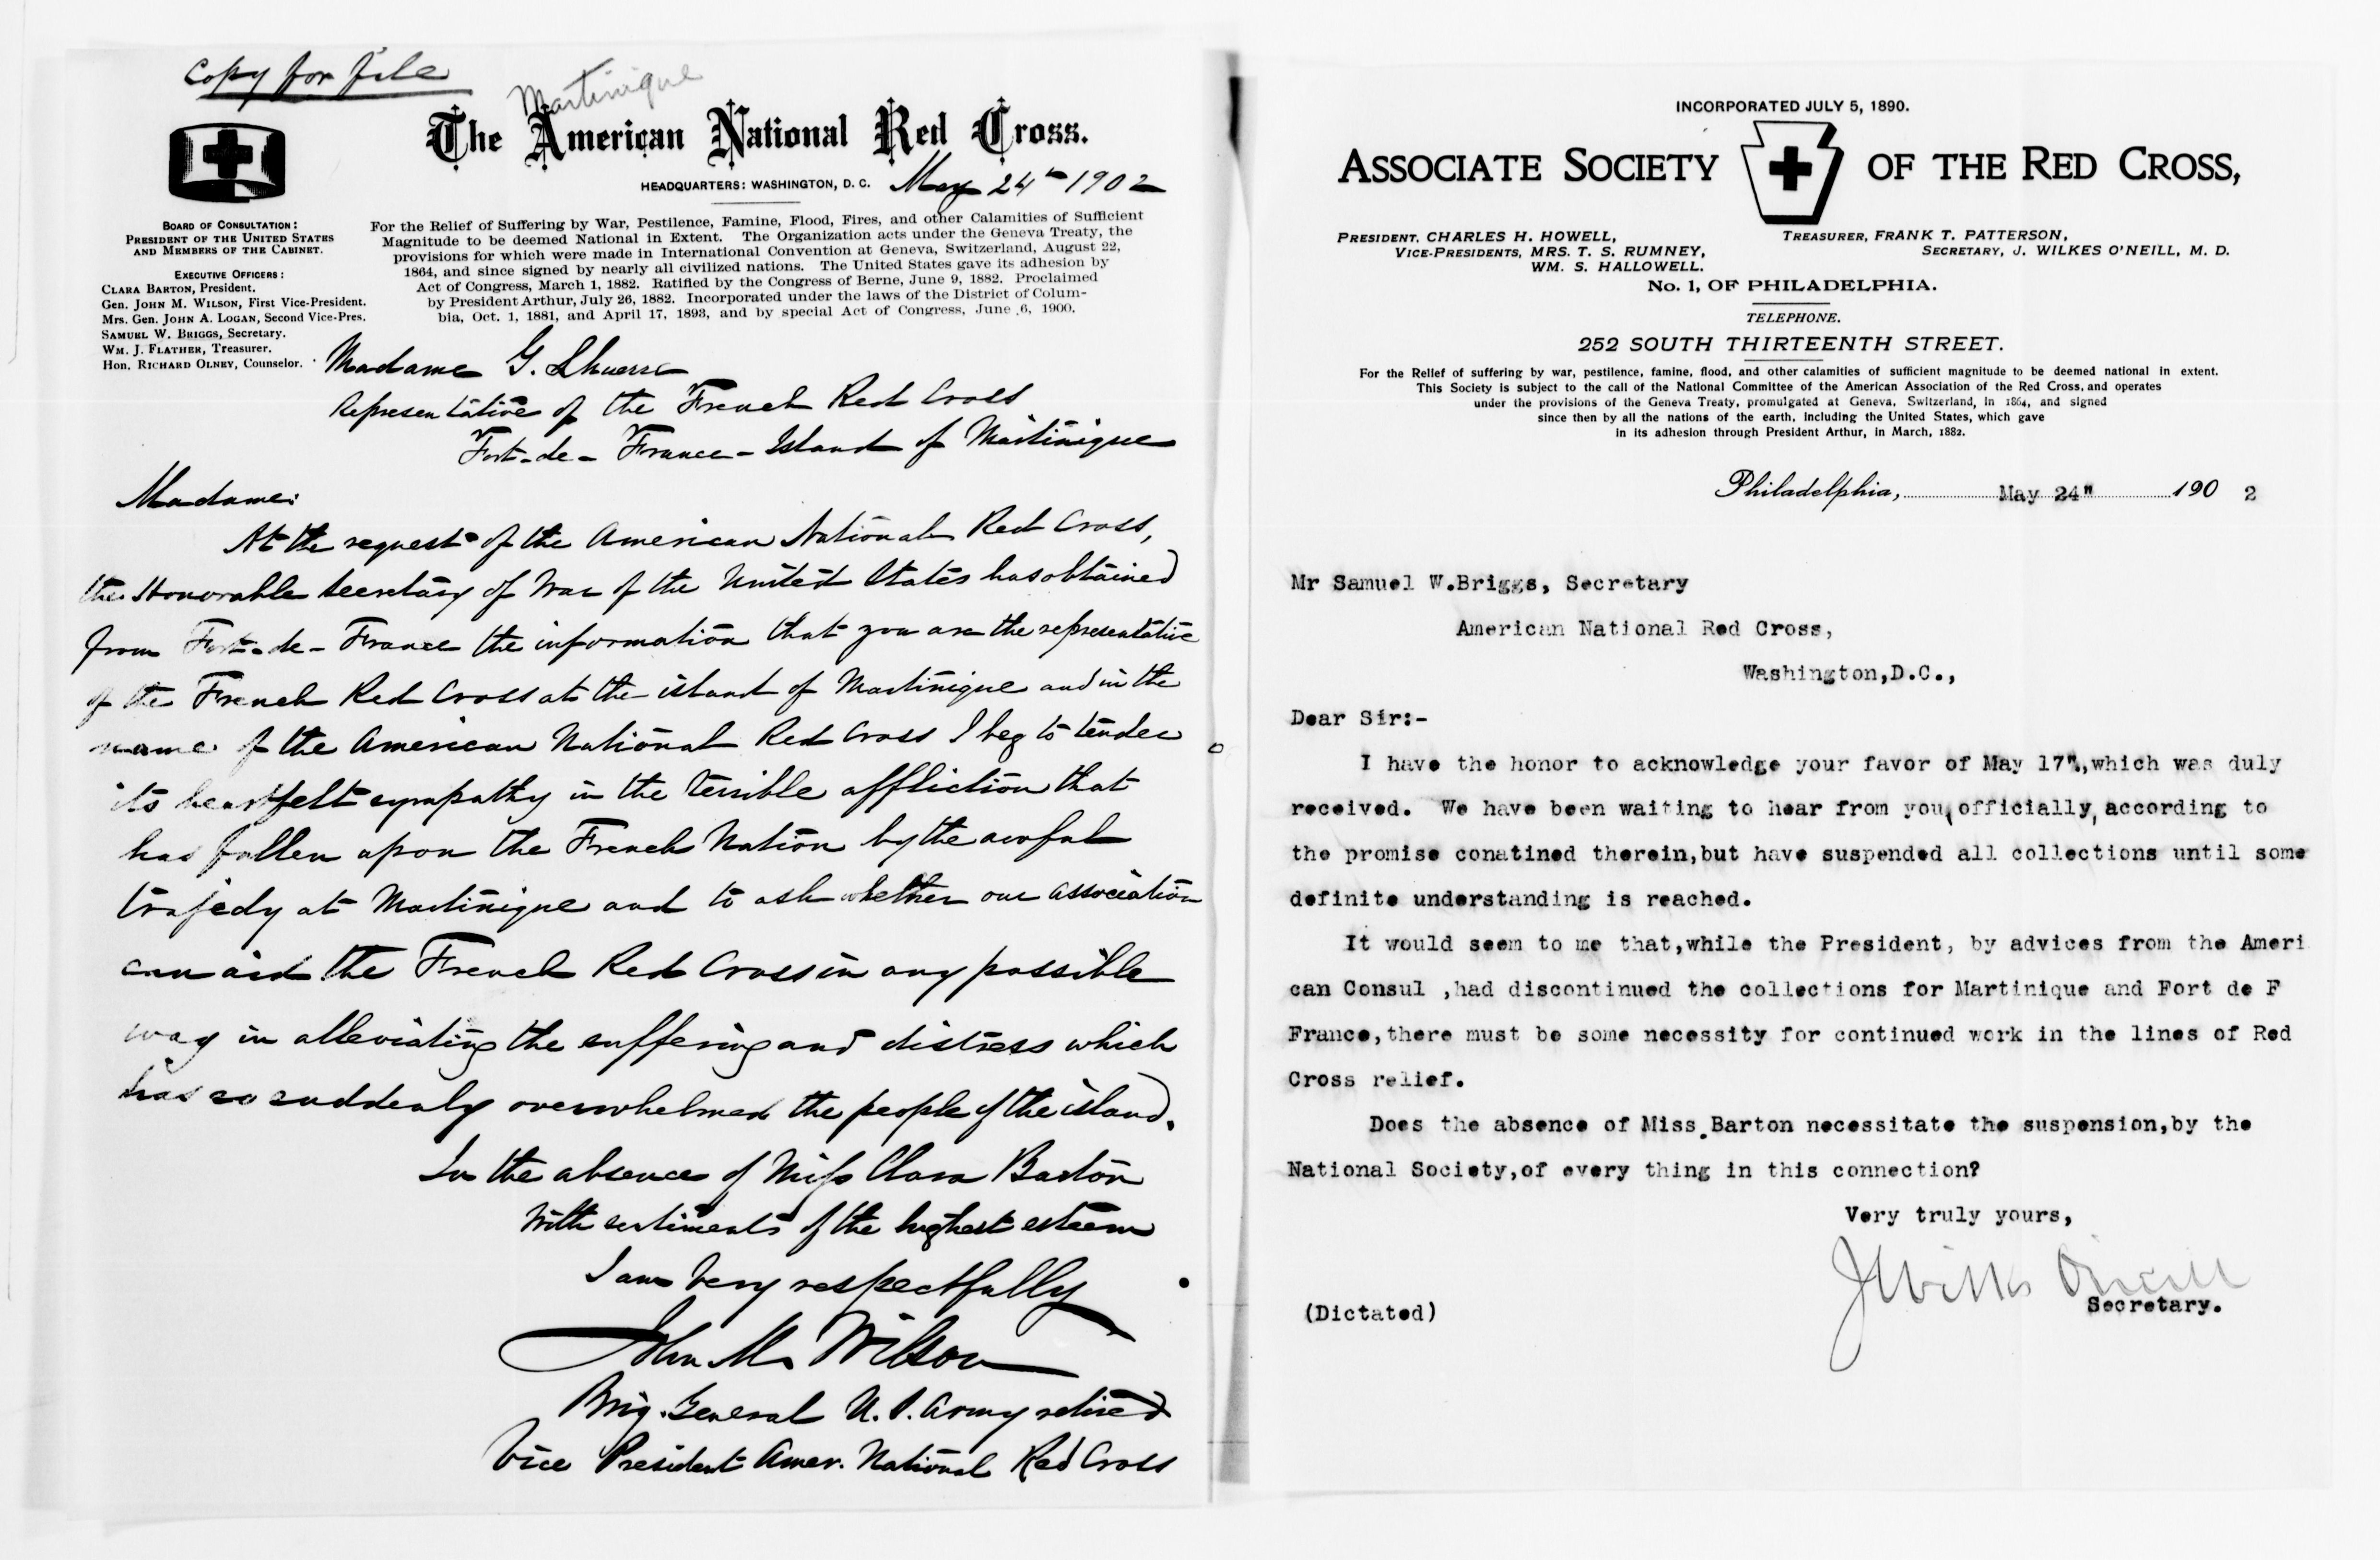 Copy for file
Martinique
The American National Red Cross.
HEADQUARTERS: WASHINGTON, D. C. May 24th 1902
BOARD OF CONSULTATION:
PRESIDENT OF THE UNITED STATES
AND MEMBERS OF THE CABINET.
EXECUTIVE OFFICERS:
CLARA BARTON, President.
Gen. JOHN M. WILSON, First Vice-President.
Mrs. Gen. JOHN A. LOGAN, Second Vice-Pres.
SAMUEL W. BRIGGS, Secretary.
WM. J. FLATHER, Treasurer.
Hon. RICHARD OLNEY, Counselor.
For the Relief of Suffering by War, Pestilence, Famine, Flood, Fires, and other Calamities of Sufficient
Magnitude to be deemed National in Extent. The Organization acts under the Geneva Treaty, the
provisions for which were made in International Convention at Geneva, Switzerland, August 22,
1864, and since signed by nearly all civilized nations. The United States gave its adhesion by
Act of Congress, March 1, 1882. Ratified by the Congress of Berne, June 9, 1882. Proclaimed
by President Arthur, July 26, 1882. Incorporated under the laws of the District of Colum-
bia, Oct. 1, 1881, and April 17, 1893, and by special Act of Congress, June 6, 1900.
Madame G.
Representative of the French Red Cross
Fort-de-France-Island of Martinique
Madame:
At the request of the American National Red Cross,
the Honorable Secretary of War of the United States has obtained
from Fort-de-France the information that you are the representative
of the French Red Cross at the island of Martinique and in the
name of the American National Red Cross I beg to tender
its heartfelt sympathy in the terrible affliction that
has fallen upon the French Nation by the awful
trajedy at Martinique and to ask whether our association
can aid the French Red Cross in any possible
way in alleviating the suffering and distress which
has so suddenly overwhelmed the people of the island.
In the absence of Miss Clara Barton
With sentiments of the highest esteem
I am Very respectfully
John M. Wilson
Brig. General U.S. Army retired
Vice President Amer. National Red Cross
INCORPORATED JULY 5, 1890.
ASSOCIATE SOCIETY OF THE RED CROSS,
PRESIDENT, CHARLES H. HOWELL,
VICE-PRESIDENTS, MRS. T. S. RUMNEY,
WM. S. HALLOWELL.
TREASURER, FRANK T. PATTERSON,
SECRETARY, J. WILKES O'NEILL, M. D.
No. 1, OF PHILADELPHIA.
TELEPHONE.
252 SOUTH THIRTEENTH STREET.
For the Relief of suffering by war, pestilence, famine, flood, and other calamities of sufficient magnitude to be deemed national in extent.
This Society is subject to the call of the National Committee of the American Association of the Red Cross, and operates
under the provisions of the Geneva Treaty, promulgated at Geneva, Switzerland, in 1864, and signed
since then by all the nations of the earth, including the United States, which gave
in its adhesion through President Arthur, in March, 1882.
Philadelphia, May 24" 190 2
Mr Samuel W.Briggs, Secretary
American National Red Cross,
Washington,D.C.,
Dear Sir:-
I have the honor to acknowledge your favor of May 17",which was duly
received. We have been waiting to hear from you,officially,according to
the promise conatined therein,but have suspended all collections until some
definite understanding is reached.
It would seem to me that,while the President, by advices from the Ameri
can Consul ,had discontinued the collections for Martinique and Fort de F
France,there must be some necessity for continued work in the lines of Red
Cross relief.
Does the absence of Miss.Barton necessitate the suspension,by the
National Society,of every thing in this connection?
Very truly yours,
J Wilkes O'Neill
Secretary.
(Dictated)